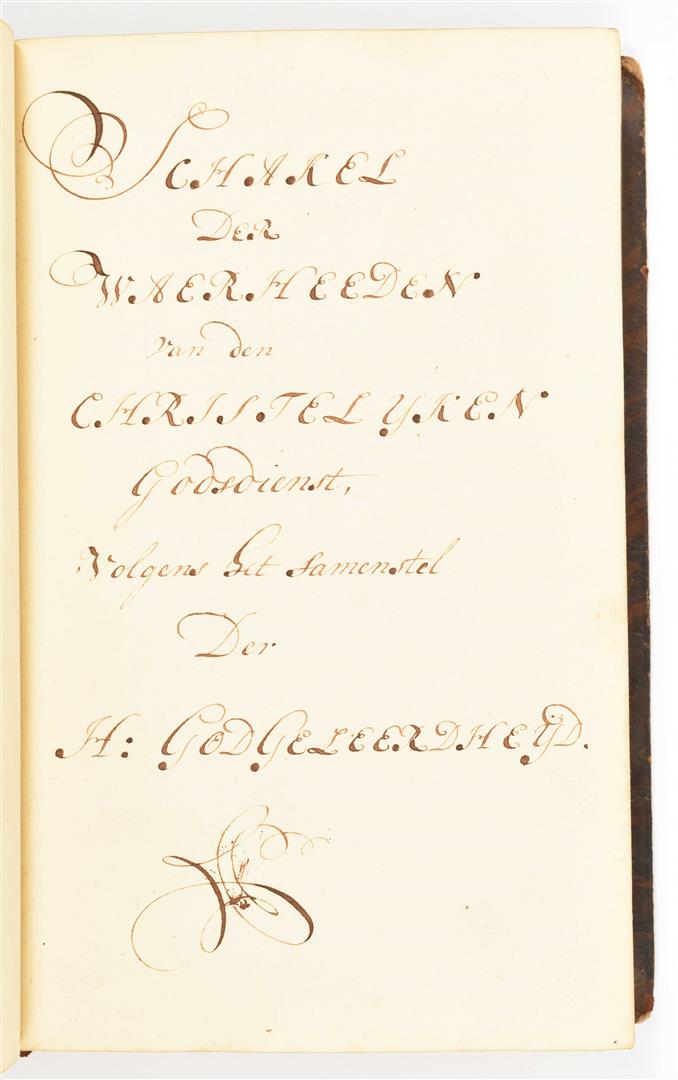 SCHAKEL
DER
WAERHEEDEN
van den
CHRISTELYKEN
Godsdienst,
Volgens het samenstel
Der
H: GODGELEERDHEYD.